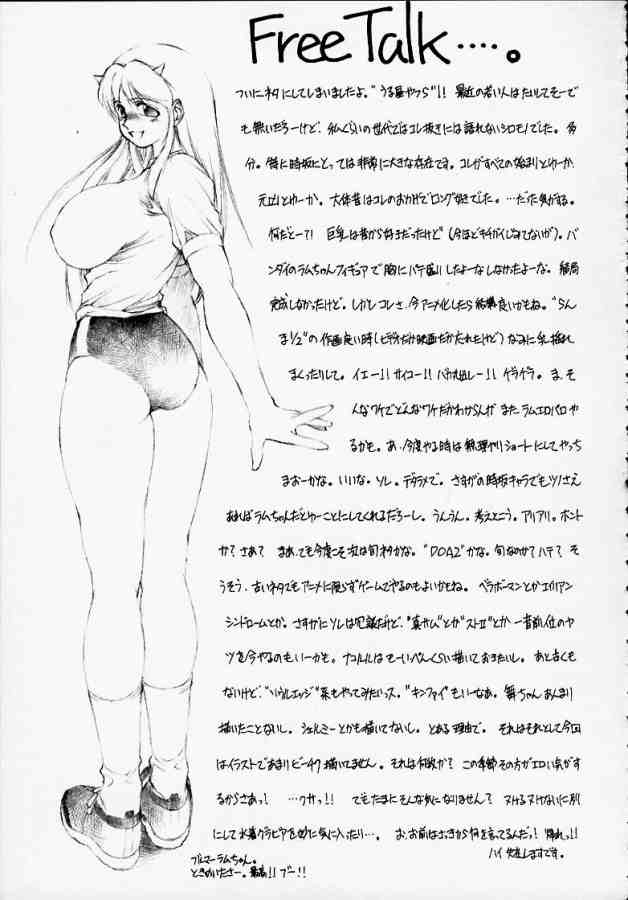 Free Talk····。
ついにネタにしてしまいましたよ。"うる星やつら"!! 最近の若い人はたいしてそーで
も無いだろーけど、私くらいの世代ではコレ抜きには語れないシロモノでした。多
分。特に時坂にとっては非常に大きな存在です。コレがすべての始まりとゆーか
元凶とゆーか。大体昔はコレのおかげでロング好きでした。…だった気がする。
何だとー?! 巨乳は昔から好きだったけど(今ほどキチガイじみてないが)。バ
ンダイのラムちゃんフィギュアで胸にパテ盛りしたよーなしなかったよーな。結局
完成しなかったけど。しかしコレさ、今アニメ化したら結構良いかもね。"らん
ま1/2"の作画良い時(ビデオだけ映画だか忘れたけど)なみに乳揺れ
まくったりして。イエー!! サイコー!! バカ丸出しー!! ゲラゲラ。ま、そ
んなワケでどんなワケだかわからんが またラムエロパロや
るかも。あ、今度やる時は無理やりショートにしてやっち
まおーかな。いいな、ソレ。デタラメで。さすがの時坂キャラでもツノさえ
あればラムちゃんだとゆーことにしてくれるだろーし。うんうん。考えとこう。アリアリ。ホント
か? さあ? まあ、でも今度こそ次は旬ネタかな。"DOA2"かな。旬なのか? ハテ? そ
うそう、古いネタでもアニメに限らずゲームでやるのもよいかもね。ベラボーマンとかエイリアン
シンドロームとか。さすがにソレは冗談だけど、"真サム"とか"ストⅡ"とか一昔前位のヤ
ツを今やるのもいーかも。ナコルルはもーいっぺんくらい描いておきたいし。あと古くも
ないけど、"ソウルエッジ"系もやってみたいっス。"キンファイ"もいーなあ。舞ちゃんあんまり
描いたことないし。シェルミーとかも描いてないし。とある理由で。それはそれとして今回
はイラストであまりビーチク描いてません。それは何故か? この季節その方がエロい気がす
るからさぁっ! …クサっ!! でもたまにそんな気になりません? ヌけるヌけないに別
にして水着グラビアを妙に気に入ったり…。お、お前はさっきから何を言ってるんだっ! 帰れっ!!
ハイ 失礼しますです。
ブルマーラムちゃん。
ときめいたさー。最高!! ブー!!